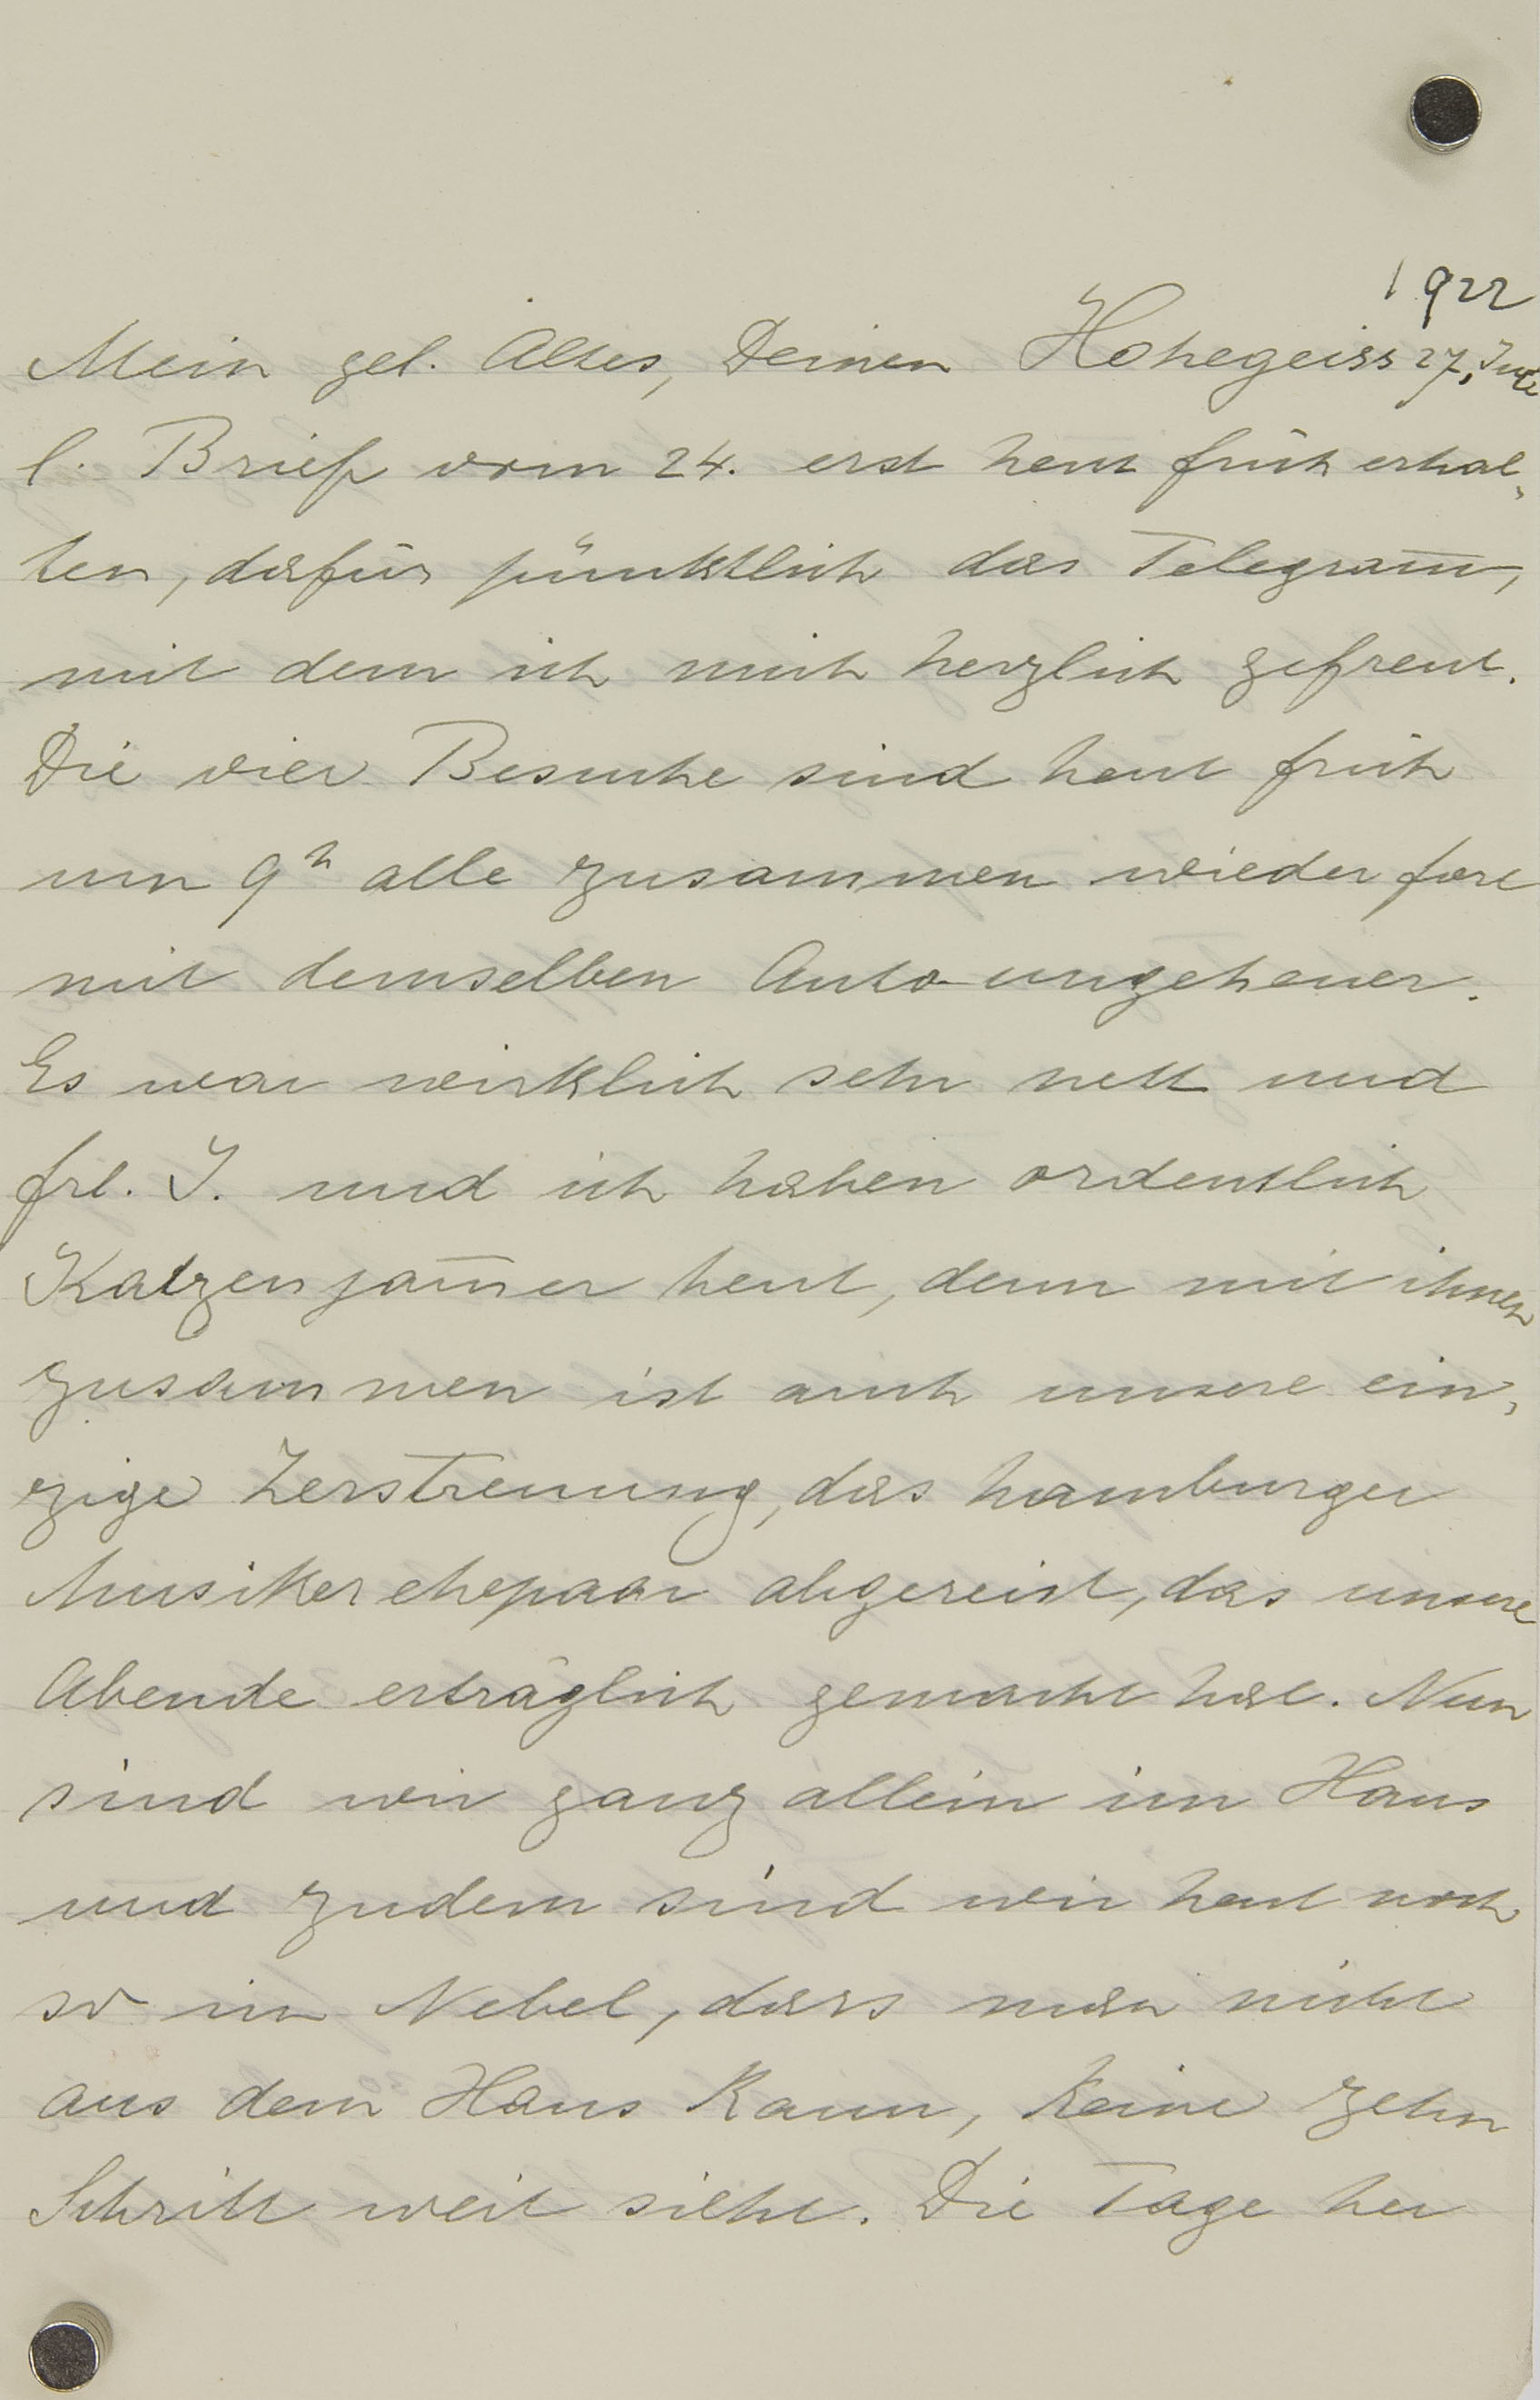 1922
Mein gel. Altes, Deinen Hohegeiss 27. Juli
l. Brief vom 24. erst heut früh erhal,
ten, dafür pünktlich das Telegram̅,
mit dem ich mich herzlich gefreut.
Die vier Besuche sind heut früh
um 9h alle zusammen wieder fort
mit demselben Auto-ungeheuer.
Es war wirklich sehr nett und
Frl. J. und ich haben ordentlich
Katzenjam̅er heut, denn mit ihnen
zusammen ist auch unsere ein,
zige Zerstreuung, das hamburger
Musikerehepaar abgereist, das unsere
Abende erträglich gemacht hat. Nun
sind wir ganz allein im Haus
und zudem sind wir heut noch
so im Nebel, dass man nicht
aus dem Haus kann, keine zehn
Schritt weit sieht. Die Tage her